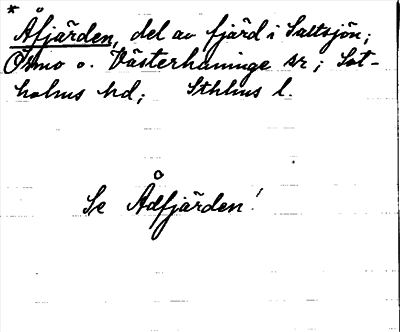 *
Åfjärden, del av fjärd i Saltsjön;
Ösmo o. Västerhaninge sr; Sot-
holms hd; Sthlms l.
Se Ådfjärden!